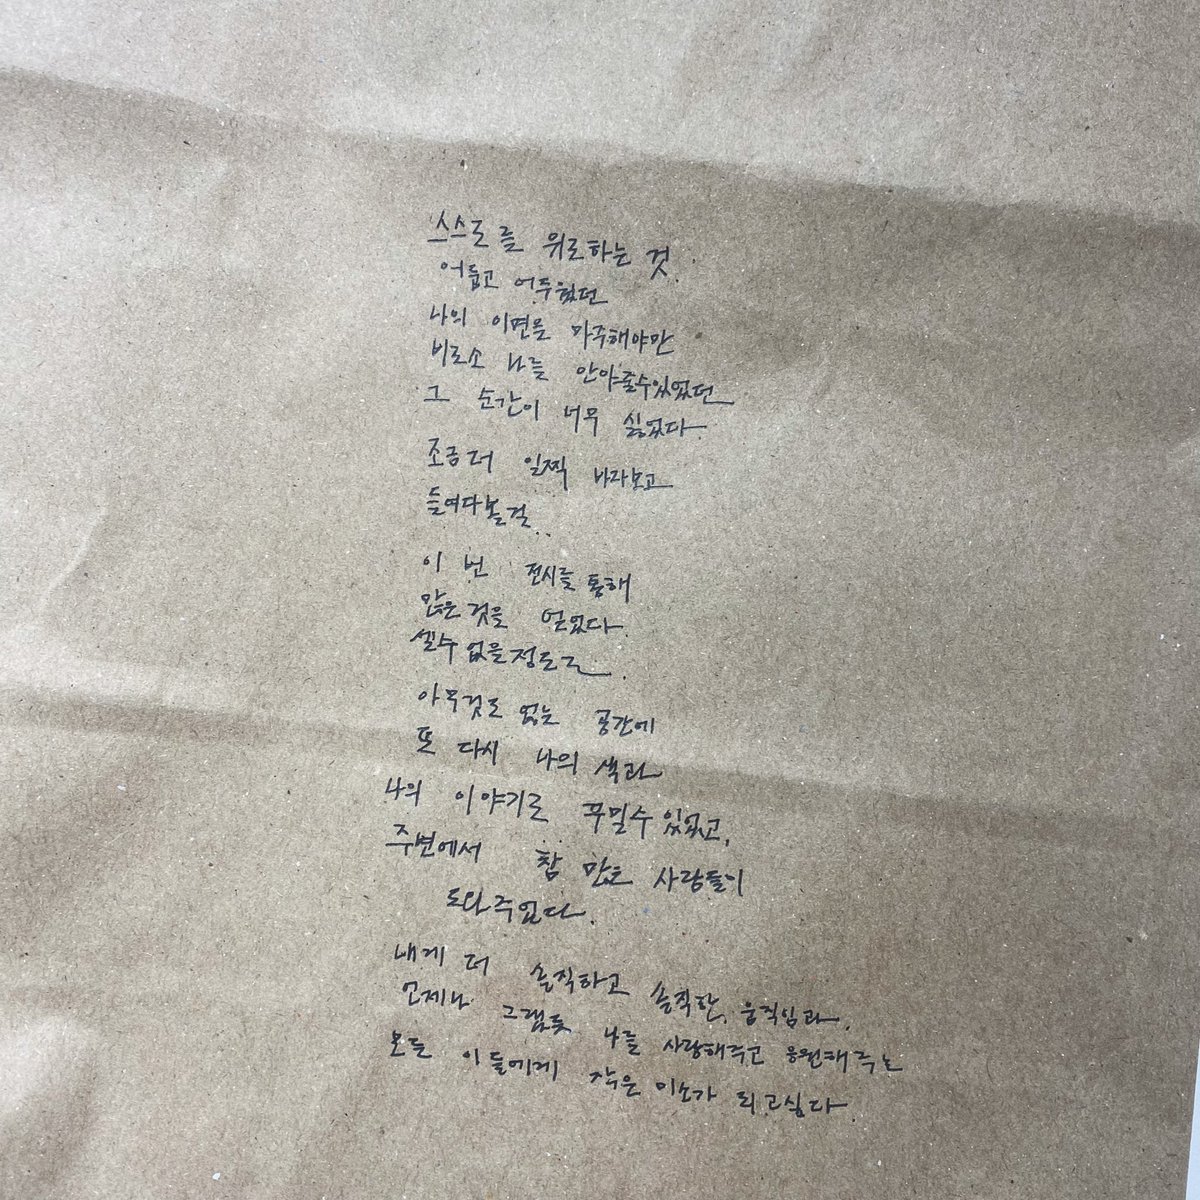 스스로를 위로하는 것.
어둡고 어두웠던
나의 이면을 마주해야만
비로소 나를 안아줄수있었던
그 순간이 너무 싫었다.
조금더 일찍 바라보고
들여다볼걸..
이 번 전시를 통해
많은것을 얻었다.
셀수 없을정도로.
아무것도 없는 공간에
또 다시 나의 색과
나의 이야기로 꾸밀수있었고,
주변에서 참 많은 사람들이
도와주었다.
내게 더 솔직하고 솔직한, 움직임과,
언제나 그랬듯 나를 사랑해주고 응원해주는
모든 이들에게 작은 미소가 되고싶다